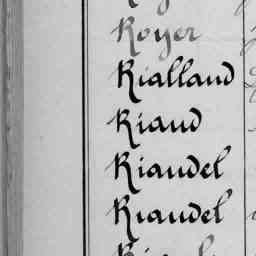 Royer
Rialland
Riaud
Riaudel
Riaudel